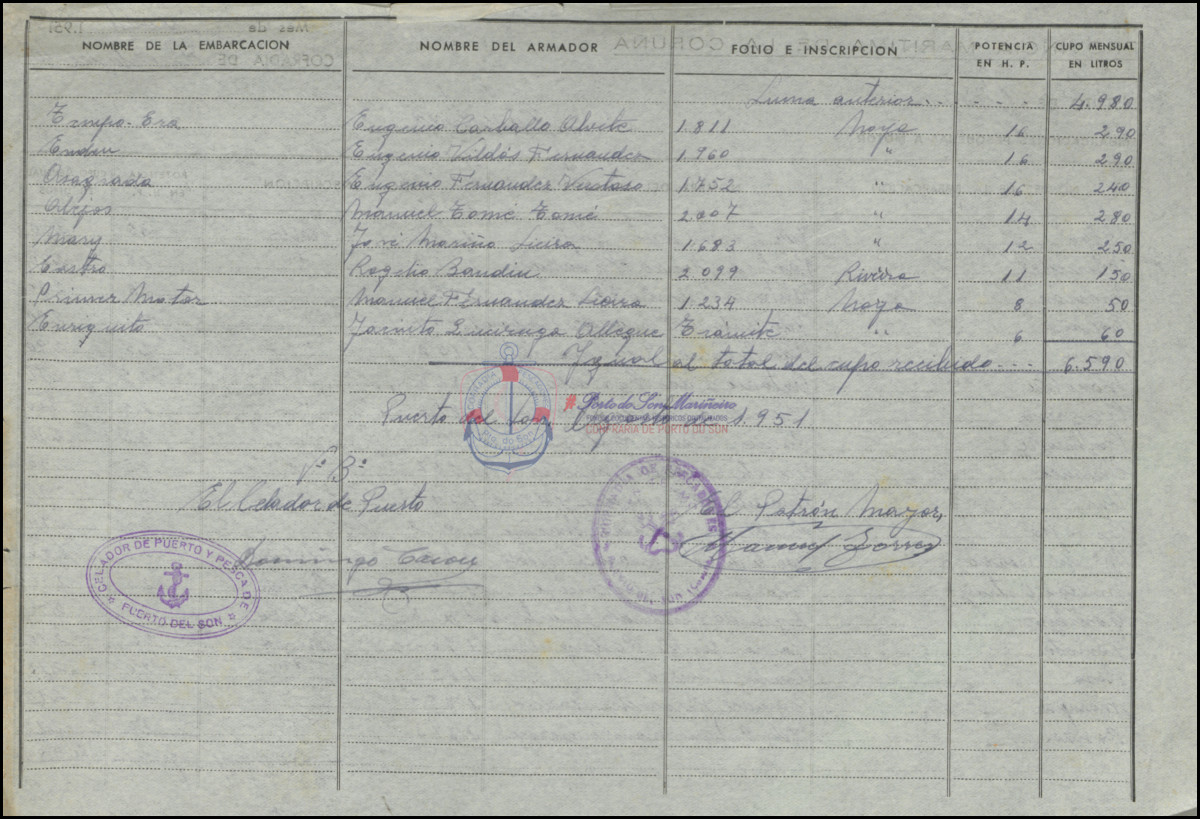 NOMBRE DE LA EMBARCACION NOMBRE DEL ARMADOR FOLIO E INSCRIPCION POTENCIA EN H. P. CUPO MENSUAL EN LITROS
Suma anterior . . - - - - 4.980
Eugenio Carballo Alvite 1.811 Noya 16 290
Eugenio Vidal Fernandez 1.960 " 16 290
Eugenio Fernandez Ventoso 1.752 " 16 240
Manuel Tomé Tomé 2.007 " 14 280
Mary José Mariño 1.683 " 12 250
Castro Rogelio Bandin 2.099 Riveira 11 150
Primer Motor Manuel Fernandez 1.234 Noya 8 50
Enriquito Jacinto Trámite " 6 60
Igual al total del cupo recibido - - - 6.590
Puerto del Son, Agosto de 1.951
COFRADIA
Pto. do Son
Porto do Son Mariñeiro
CONFRARÍA DE PORTO DO SON
Vº Bº
El Celador de Puerto El Patrón Mayor,
Domingo Manuel Torres
CELADOR DE PUERTO Y PESCA DE
PUERTO DEL SON
DE PESCADORES